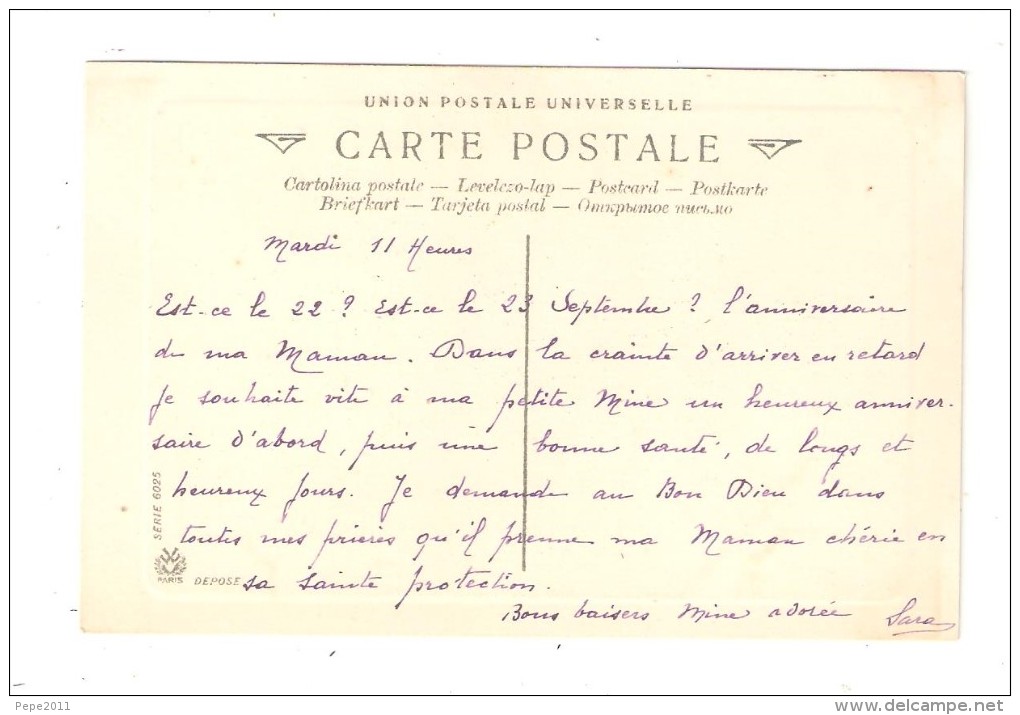 UNION POSTALE UNIVERSELLE
CARTE POSTALE
Cartolina postale — Levelezo-lap — Postcard — Postkarte
Briefkart — Tarjeta postal — Открытое письмо
Mardi 11 Heures
Est-ce le 22 ? Est-ce le 23 Septembre ? l'anniversaire
de ma Maman. Dans la crainte d'arriver en retard
je souhaite vite à ma petite Mine un heureux anniver-
saire d'abord, puis une bonne santé, de longs et
heureux jours. Je demande au Bon Dieu dans
toutes mes prières qu'il prenne ma Maman chérie en
sa sainte protection.
Bons baisers Mine adorée Sara
SÉRIE 6025
PARIS DEPOSE
Pepe2011
www.delcampe.net